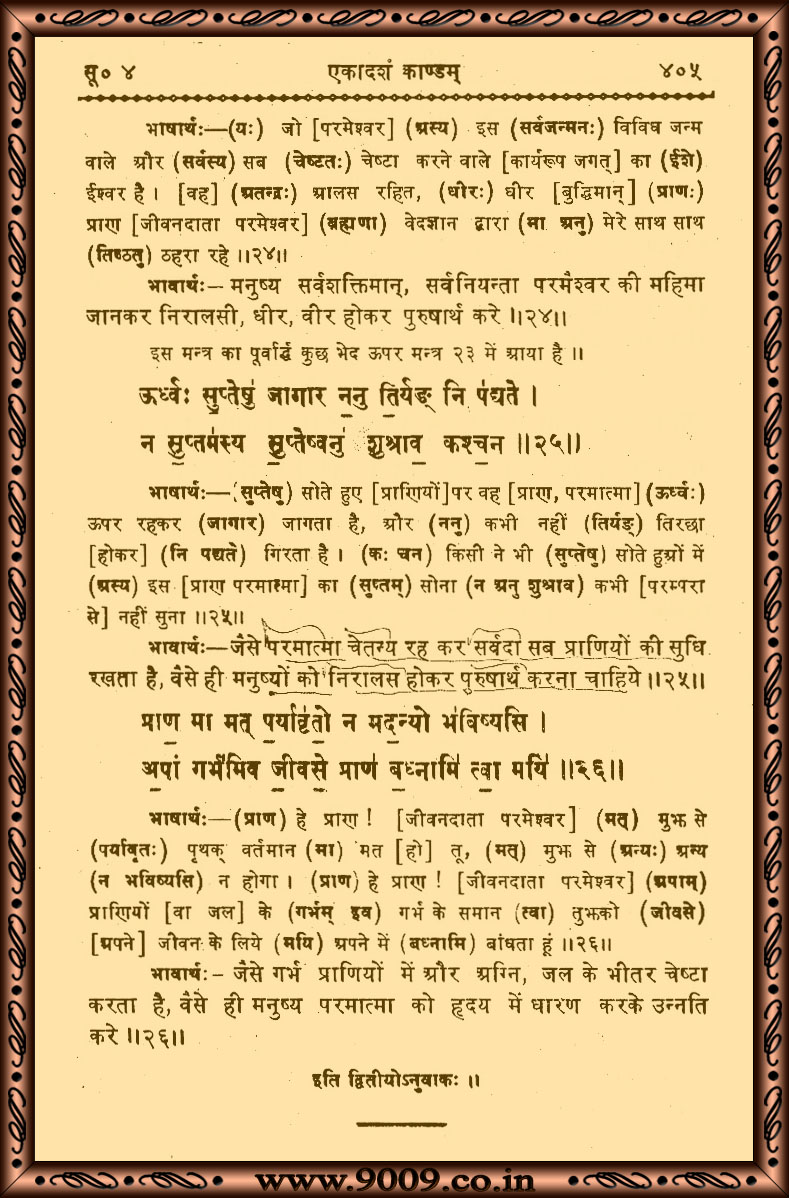 सू० ४ एकादशं काण्डम् ४०५
भाषार्थः—(यः) जो [परमेश्वर] (अस्य) इस (सर्वजन्मनः) विविध जन्म
वाले और (सर्वस्य) सब (चेष्टतः) चेष्टा करने वाले [कार्यरूप जगत्] का (ईशे)
ईश्वर है । [वह] (अतन्द्रः) आलस रहित, (धीरः) धीर [बुद्धिमान्] (प्राणः)
प्राण [जीवनदाता परमेश्वर] (ब्रह्मणा) वेदज्ञान द्वारा (मा अनु) मेरे साथ साथ
(तिष्ठतु) ठहरा रहे ॥२४॥
भावार्थः– मनुष्य सर्वशक्तिमान्, सर्वनियन्ता परमेश्वर की महिमा
जानकर निरालसी, धीर, वीर होकर पुरुषार्थ करे ॥२४॥
इस मन्त्र का पूर्वार्द्ध कुछ भेद ऊपर मन्त्र २३ में आया है ॥
ऊर्ध्वः सु॒प्तेषु॑ जागार न॒नु ति॒र्यङ् नि प॑द्यते ।
न सु॒प्तम॑स्य सु॒प्तेष्वनु॑ शुश्राव॒ कश्च॒न ॥२५॥
भाषार्थः—(सुप्तेषु) सोते हुए [प्राणियों]पर वह [प्राण, परमात्मा] (ऊर्ध्वः)
ऊपर रहकर (जागार) जागता है, और (ननु) कभी नहीं (तिर्यङ्) तिरछा
[होकर] (नि पद्यते) गिरता है । (कः चन) किसी ने भी (सुप्तेषु) सोते हुओं में
(अस्य) इस [प्राण परमात्मा] का (सुप्तम्) सोना (न अनु शुश्राव) कभी [परम्परा
से] नहीं सुना ॥२५॥
भावार्थः—जैसे परमात्मा चेतन्य रह कर सर्वदा सब प्राणियों की सुधि
रखता है, वैसे ही मनुष्यों को निरालस होकर पुरुषार्थ करना चाहिये ॥२५॥
प्राण॒ मा मत् प॒र्यावृ॑तो॒ न मद॒न्यो भ॑विष्यसि ।
अ॒पां गर्भ॑मिव जी॒वसे॒ प्राण॑ ब॒ध्नामि॑ त्वा॒ मयि॑ ॥२६॥
भाषार्थः—(प्राण) हे प्राण ! [जीवनदाता परमेश्वर] (मत्) मुझ से
(पर्यावृतः) पृथक् वर्तमान (मा) मत [हो] तू, (मत्) मुझ से (अन्यः) अन्य
(न भविष्यसि) न होगा । (प्राण) हे प्राण ! [जीवनदाता परमेश्वर] (अपाम्)
प्राणियों [वा जल] के (गर्भम् इव) गर्भ के समान (त्वा) तुझको (जीवसे)
[अपने] जीवन के लिये (मयि) अपने में (बध्नामि) बांधता हूं ॥२६॥
भावार्थः– जैसे गर्भ प्राणियों में और अग्नि, जल के भीतर चेष्टा
करता है, वैसे ही मनुष्य परमात्मा को हृदय में धारण करके उन्नति
करे ॥२६॥
इति द्वितीयोऽनुवाकः ॥
www.9009.co.in